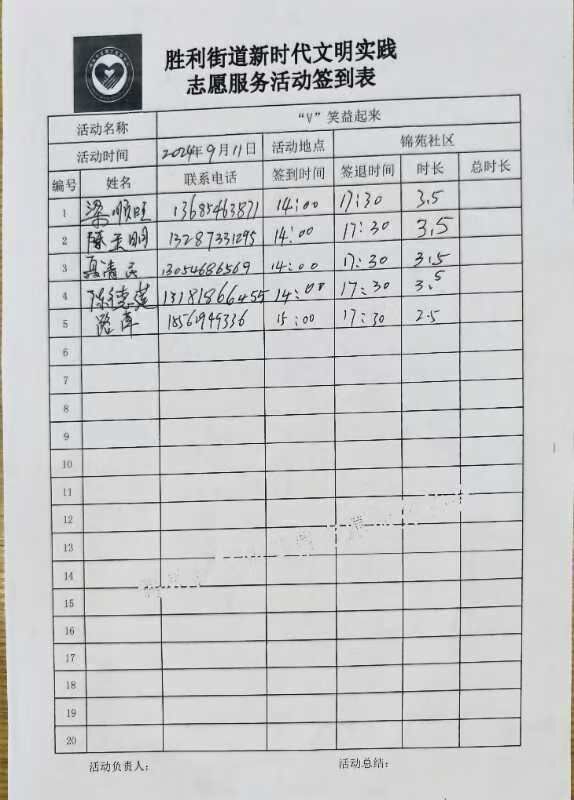 胜利街道新时代文明实践
志愿服务活动签到表
活动名称 “V”笑益起来
活动时间 2024年9月11日 活动地点 锦苑社区
编号 姓名 联系电话 签到时间 签退时间 时长 总时长
1 梁顺旺 13685463871 14:00 17:30 3.5
2 13287331295 14:00 17:30 3.5
3 聂清民 13054686569 14:00 17:30 3.5
4 陈德莲 13181866455 14:00 17:30 3.5
5 15561949336 15:00 17:30 2.5
6
7
8
9
10
11
12
13
14
15
16
17
18
19
20
活动负责人: 活动总结: